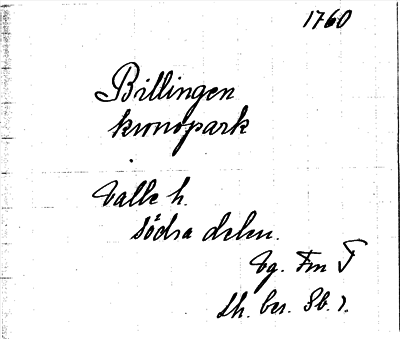 1760
Billingen
kronopark
Valle h.
södra delen.
Vg. Fm
Lh. ber. Sb.